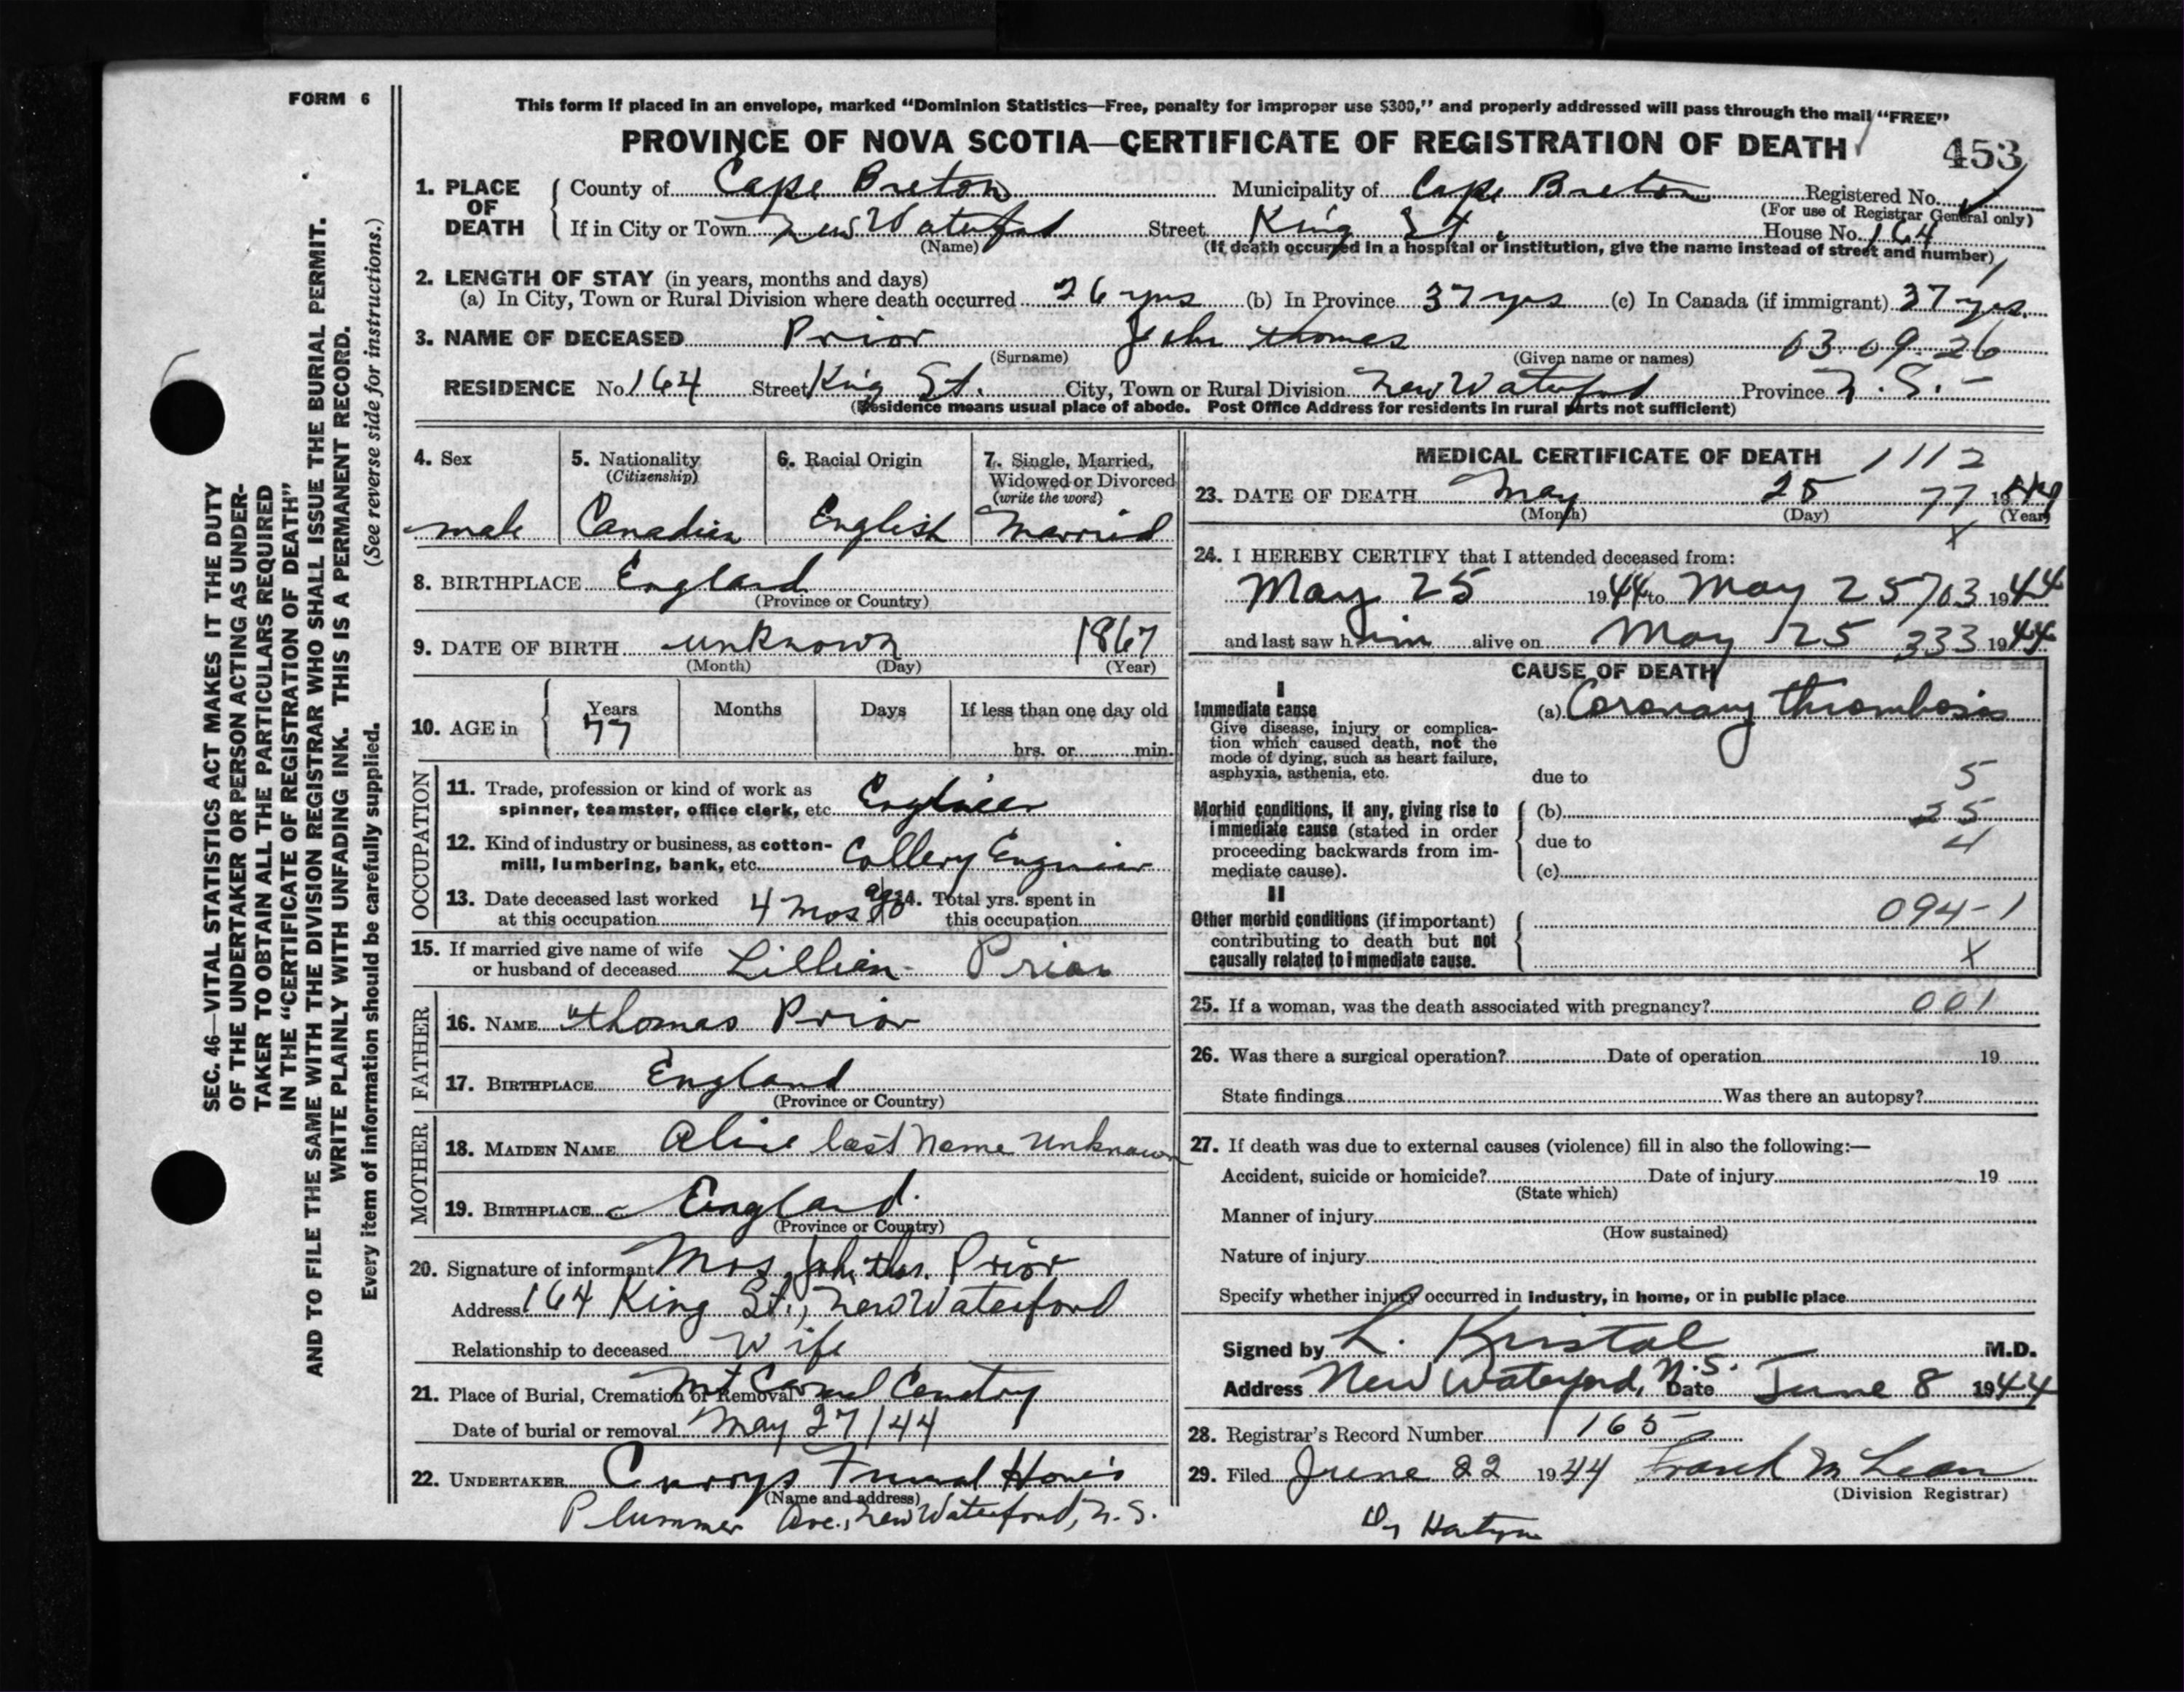 FORM 6
This form if placed in an envelope, marked “Dominion Statistics—Free, penalty for improper use $300,” and properly addressed will pass through the mail “FREE”
PROVINCE OF NOVA SCOTIA—CERTIFICATE OF REGISTRATION OF DEATH
453
1. PLACE OF DEATH
County of Cape Breton Municipality of Cape Breton Registered No.
(For use of Registrar General only)
If in City or Town New Waterford Street King St. House No. 164
(Name) (If death occurred in a hospital or institution, give the name instead of street and number)
2. LENGTH OF STAY (in years, months and days)
(a) In City, Town or Rural Division where death occurred 26 yrs (b) In Province 37 yrs (c) In Canada (if immigrant) 37 yrs.
3. NAME OF DECEASED Prior John Thomas 03-09-26
(Surname) (Given name or names)
RESIDENCE No 164 Street King St. City, Town or Rural Division New Waterford Province N.S.-
(Residence means usual place of abode. Post Office Address for residents in rural parts not sufficient)
4. Sex
male
5. Nationality
(Citizenship)
Canadian
6. Racial Origin
English
7. Single, Married,
Widowed or Divorced
(write the word)
Married
8. BIRTHPLACE England
(Province or Country)
9. DATE OF BIRTH unknown 1867
(Month) (Day) (Year)
10. AGE in
Years Months Days If less than one day old
77
hrs. or min.
OCCUPATION
11. Trade, profession or kind of work as
spinner, teamster, office clerk, etc. Engineer
12. Kind of industry or business, as cotton-
mill, lumbering, bank, etc. Collery Engineer
13. Date deceased last worked
at this occupation 4 mos ago
14. Total yrs. spent in
this occupation
15. If married give name of wife
or husband of deceased Lillian- Prior
FATHER
16. NAME Thomas Prior
17. BIRTHPLACE England
(Province or Country)
MOTHER
18. MAIDEN NAME Alice last name unknown
19. BIRTHPLACE England.
(Province or Country)
20. Signature of informant Mrs. John Thos. Prior
Address 164 King St., New Waterford
Relationship to deceased Wife
21. Place of Burial, Cremation or Removal Mt Carmel Cemetry
Date of burial or removal May 27/44
22. UNDERTAKER Currys Funeral Home
(Name and address)
Plummer Ave., New Waterford, N.S.
MEDICAL CERTIFICATE OF DEATH 1112
23. DATE OF DEATH May 25 77 1944
(Month) (Day) (Year)
X
24. I HEREBY CERTIFY that I attended deceased from:
May 25 1944 to May 25 703 1944
and last saw him alive on May 25 333 1944
CAUSE OF DEATH
I
Immediate cause
Give disease, injury or complica-
tion which caused death, not the
mode of dying, such as heart failure,
asphyxia, asthenia, etc.
(a) Coronary thrombosis
due to 5
Morbid conditions, if any, giving rise to
immediate cause (stated in order
proceeding backwards from im-
mediate cause).
(b) 25
due to 4
(c)
II
Other morbid conditions (if important)
contributing to death but not
causally related to immediate cause.
094-1
X
25. If a woman, was the death associated with pregnancy? 001
26. Was there a surgical operation? Date of operation 19
State findings Was there an autopsy?
27. If death was due to external causes (violence) fill in also the following:—
Accident, suicide or homicide? Date of injury 19
(State which)
Manner of injury
(How sustained)
Nature of injury
Specify whether injury occurred in industry, in home, or in public place
Signed by L. Kristal M.D.
Address New Waterford, N.S. Date June 8 1944
28. Registrar's Record Number 165
29. Filed June 22 1944 Frank McLean
(Division Registrar)
SEC. 46—VITAL STATISTICS ACT MAKES IT THE DUTY
OF THE UNDERTAKER OR PERSON ACTING AS UNDER-
TAKER TO OBTAIN ALL THE PARTICULARS REQUIRED
IN THE “CERTIFICATE OF REGISTRATION OF DEATH”
AND TO FILE THE SAME WITH THE DIVISION REGISTRAR WHO SHALL ISSUE THE BURIAL PERMIT.
WRITE PLAINLY WITH UNFADING INK. THIS IS A PERMANENT RECORD.
Every item of information should be carefully supplied. (See reverse side for instructions.)